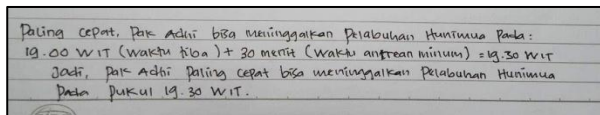 Paling cepat, Pak Adhi bisa meninggalkan Pelabuhan Hunimua Pada:
19.00 WIT (waktu tiba) + 30 menit (waktu antrean minum) = 19.30 WIT
Jadi, Pak Adhi Paling cepat bisa meninggalkan Pelabuhan Hunimua
Pada Pukul 19.30 WIT.